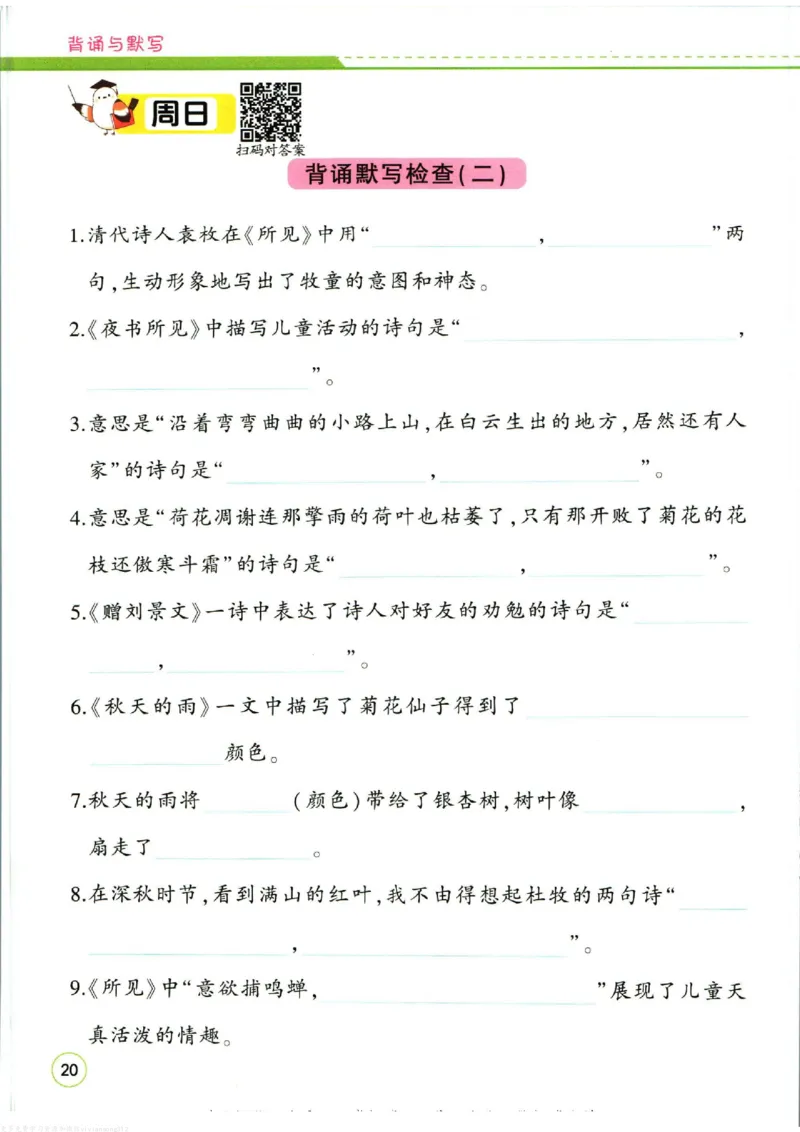 背诵与默写
周日
扫码对答案
背诵默写检查(二)
1.清代诗人袁枚在《所见》中用“ , ”两
句,生动形象地写出了牧童的意图和神态。
2.《夜书所见》中描写儿童活动的诗句是“ ,
”。
3.意思是“沿着弯弯曲曲的小路上山,在白云生出的地方,居然还有人
家”的诗句是“ , ”。
4.意思是“荷花凋谢连那擎雨的荷叶也枯萎了,只有那开败了菊花的花
枝还傲寒斗霜”的诗句是“ , ”。
5.《赠刘景文》一诗中表达了诗人对好友的劝勉的诗句是“
, ”。
6.《秋天的雨》一文中描写了菊花仙子得到了
颜色。
7.秋天的雨将 (颜色)带给了银杏树,树叶像 ,
扇走了 。
8.在深秋时节,看到满山的红叶,我不由得想起杜牧的两句诗“
, ”。
9.《所见》中“意欲捕鸣蝉, ”展现了儿童天
真活泼的情趣。
20